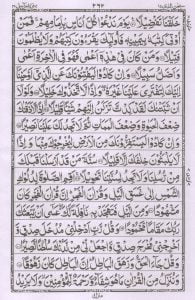 خَلَقْنَا تَفْضِيْلًا ۝ يَوْمَ نَدْعُوْا كُلَّ اُنَاسٍۭ بِاِمَامِهِمْ ۚ فَمَنْ
اُوْتِيَ كِتٰبَهٗ بِيَمِيْنِهٖ فَاُولٰٓئِكَ يَقْرَءُوْنَ كِتٰبَهُمْ وَلَا يُظْلَمُوْنَ
فَتِيْلًا ۝ وَمَنْ كَانَ فِيْ هٰذِهٖٓ اَعْمٰى فَهُوَ فِي الْاٰخِرَةِ اَعْمٰى
وَاَضَلُّ سَبِيْلًا ۝ وَاِنْ كَادُوْا لَيَفْتِنُوْنَكَ عَنِ الَّذِيْٓ اَوْحَيْنَآ
اِلَيْكَ لِتَفْتَرِيَ عَلَيْنَا غَيْرَهٗ ۖ وَاِذًا لَّاتَّخَذُوْكَ خَلِيْلًا ۝ وَلَوْلَآ
اَنْ ثَبَّتْنٰكَ لَقَدْ كِدْتَّ تَرْكَنُ اِلَيْهِمْ شَيْـًٔا قَلِيْلًا ۝ اِذًا لَّاَذَقْنٰكَ
ضِعْفَ الْحَيٰوةِ وَضِعْفَ الْمَمَاتِ ثُمَّ لَا تَجِدُ لَكَ عَلَيْنَا نَصِيْرًا ۝
وَاِنْ كَادُوْا لَيَسْتَفِزُّوْنَكَ مِنَ الْاَرْضِ لِيُخْرِجُوْكَ مِنْهَا وَاِذًا
لَّا يَلْبَثُوْنَ خِلٰفَكَ اِلَّا قَلِيْلًا ۝ سُنَّةَ مَنْ قَدْ اَرْسَلْنَا قَبْلَكَ
مِنْ رُّسُلِنَا وَلَا تَجِدُ لِسُنَّتِنَا تَحْوِيْلًا ۝ اَقِمِ الصَّلٰوةَ لِدُلُوْكِ
الشَّمْسِ اِلٰى غَسَقِ الَّيْلِ وَقُرْاٰنَ الْفَجْرِ ۭ اِنَّ قُرْاٰنَ الْفَجْرِ كَانَ
مَشْهُوْدًا ۝ وَمِنَ الَّيْلِ فَتَهَجَّدْ بِهٖ نَافِلَةً لَّكَ ۖ عَسٰٓى اَنْ يَّبْعَثَكَ
رَبُّكَ مَقَامًا مَّحْمُوْدًا ۝ وَقُلْ رَّبِّ اَدْخِلْنِيْ مُدْخَلَ صِدْقٍ وَّ
اَخْرِجْنِيْ مُخْرَجَ صِدْقٍ وَّاجْعَلْ لِّيْ مِنْ لَّدُنْكَ سُلْطٰنًا نَّصِيْرًا ۝
وَقُلْ جَآءَ الْحَقُّ وَزَهَقَ الْبَاطِلُ ۭ اِنَّ الْبَاطِلَ كَانَ زَهُوْقًا ۝ وَ
نُنَزِّلُ مِنَ الْقُرْاٰنِ مَا هُوَ شِفَآءٌ وَّرَحْمَةٌ لِّلْمُؤْمِنِيْنَ ۙ وَلَا يَزِيْدُ